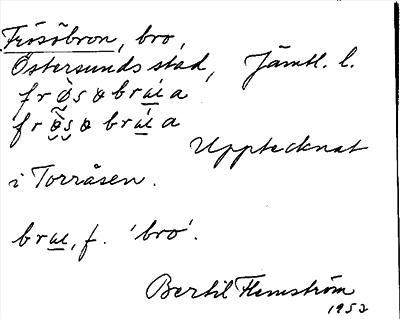 Frösöbron, bro,
Östersunds stad, Jämtl. l.
frø̀sɷbrɯ́a
frø̀sɷbrɯ́a
Upptecknat
i Torråsen.
brɯ, f. 'bro'.
Bertil Flemström
1952